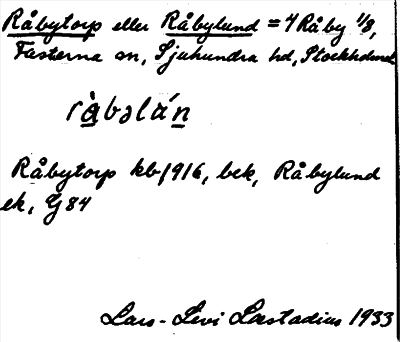 Råbytorp eller Råbylund = 4 Råby 1/8,
Fasterna sn, Sjuhundra hd, Stockholms l
ràbəlán
Råbytorp kb 1916, bek, Råbylund
ek, G 84
Lars-Levi Læstadius 1933